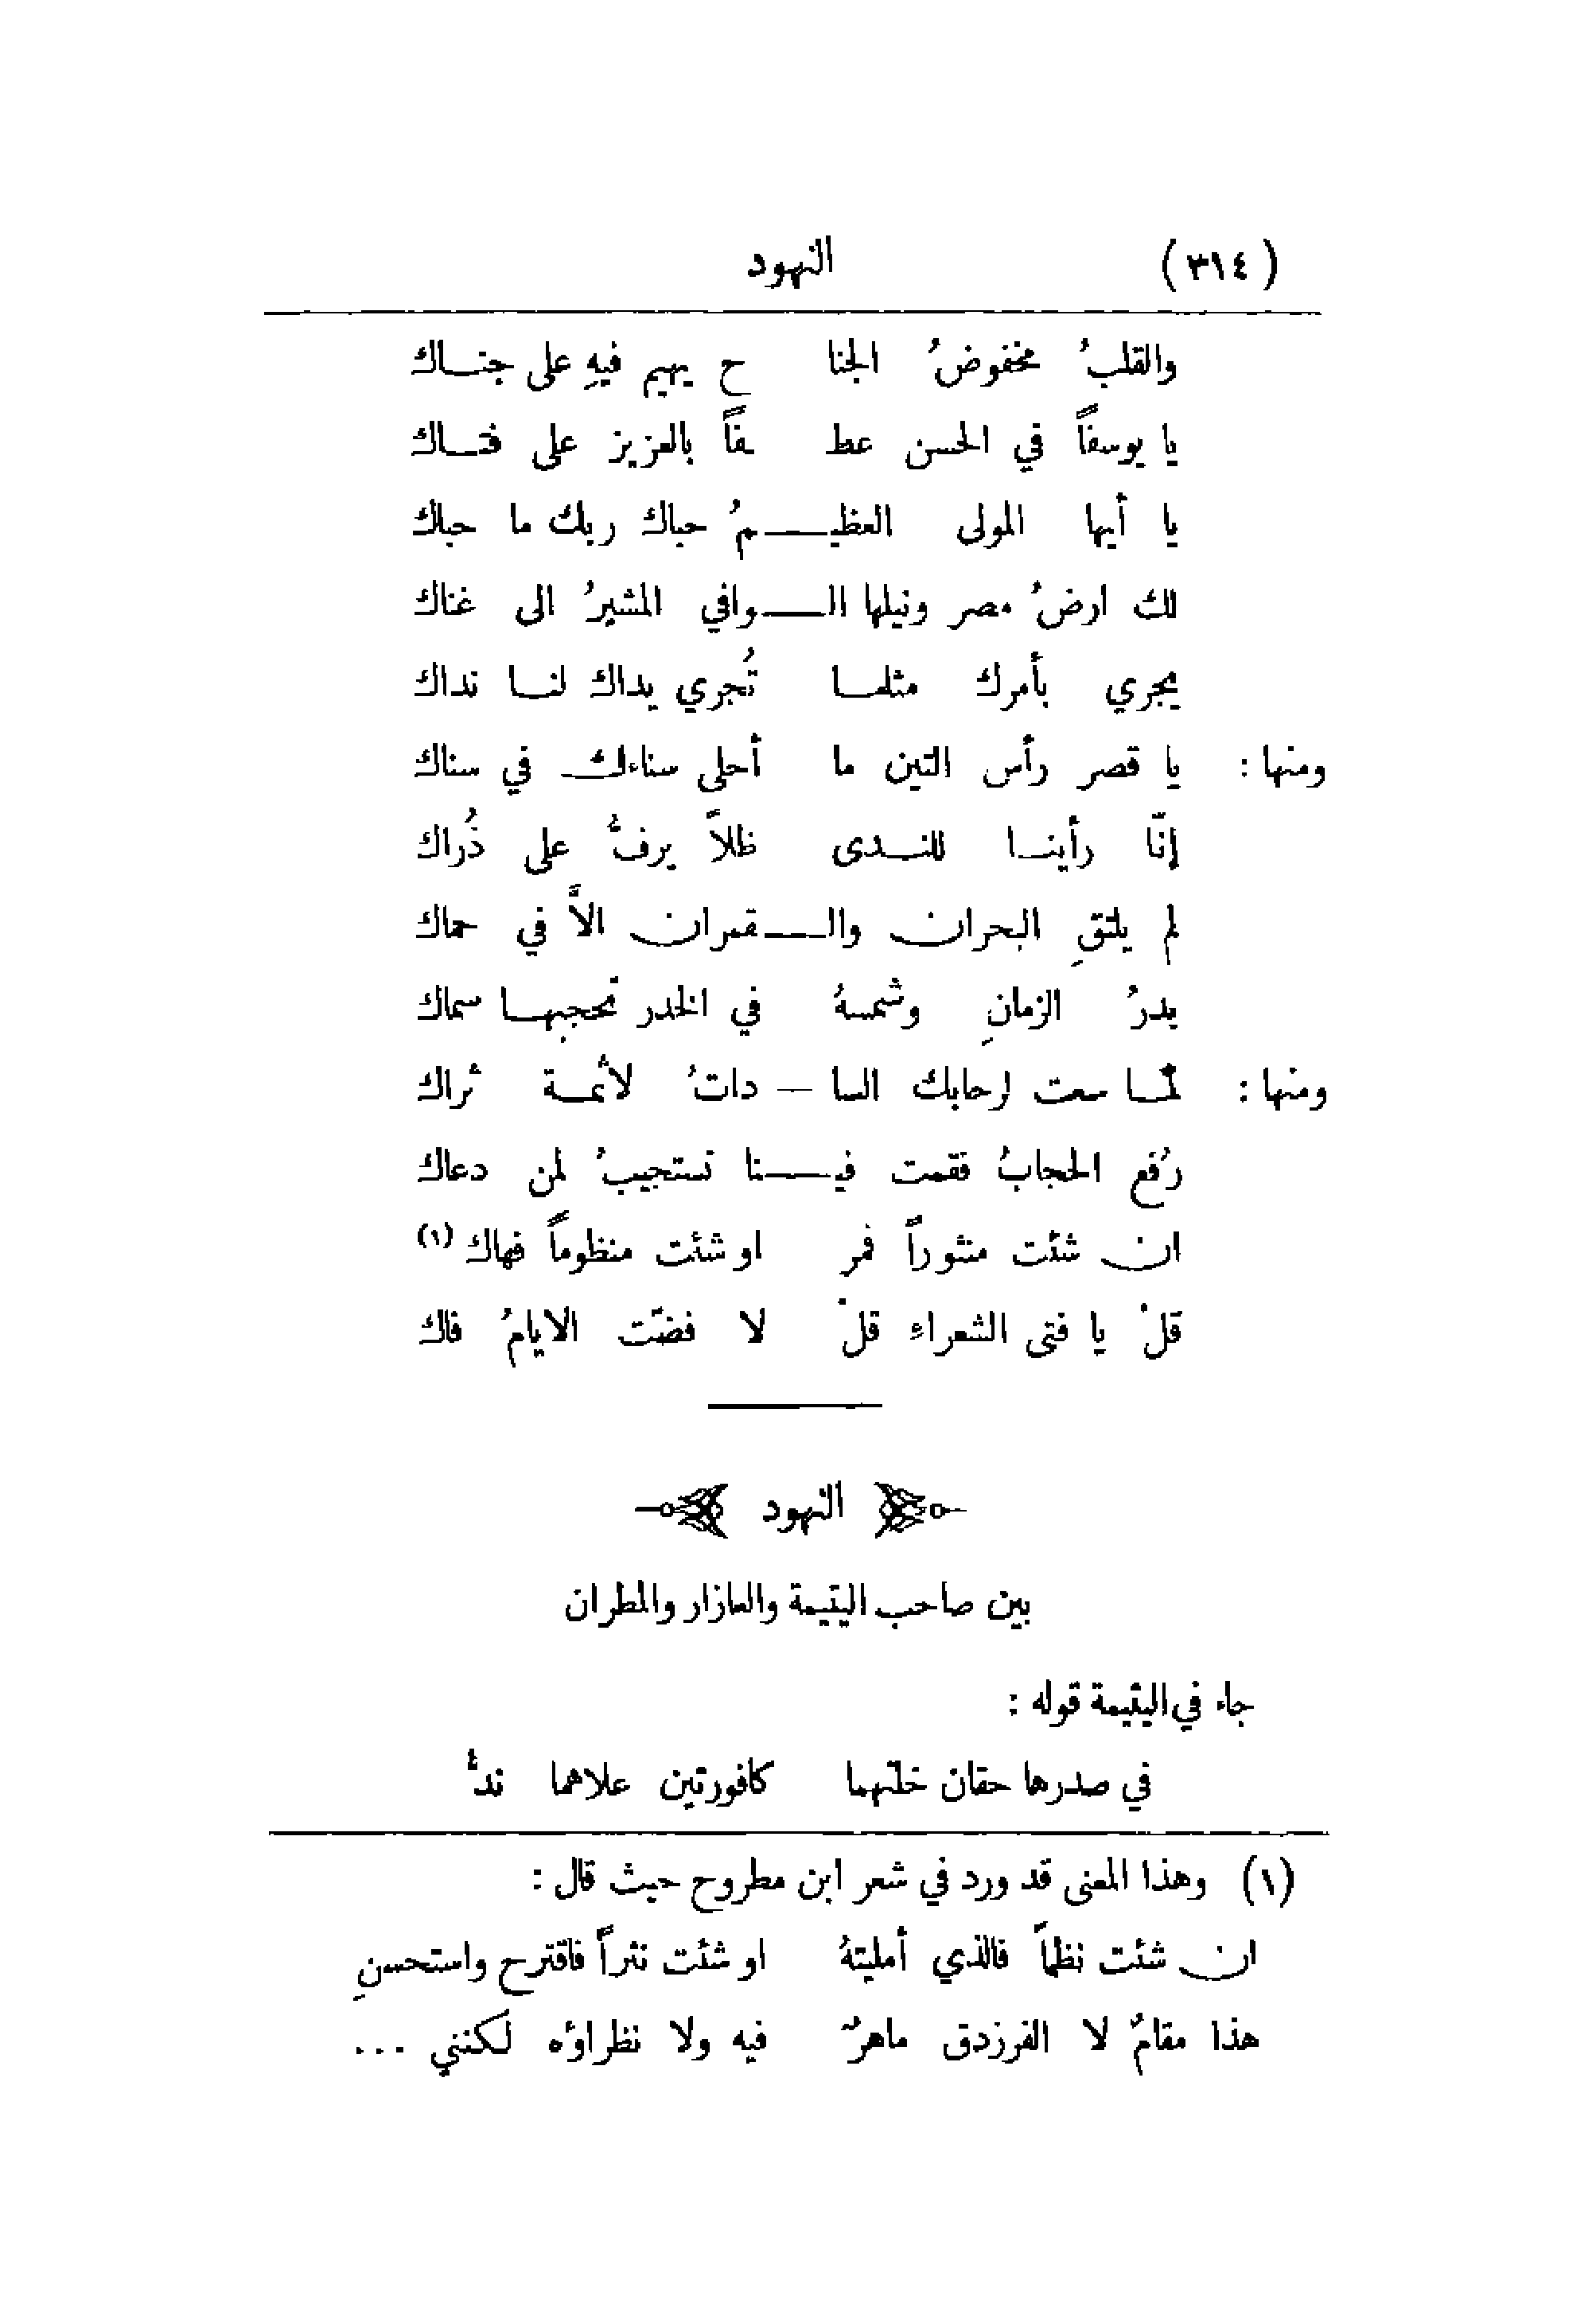 (٣١٤) النهود
والقلبُ مخفوضُ الجنا ح يهيم فيهِ على جناك
يا يوسفاً في الحسن عط فاً بالعزيز على فتاك
يا أيها المولى العظيـــمُ حباك ربك ما حباك
لك ارضُ مصر ونيلها الـــوافي المشيرُ الى غناك
يجري بأمرك مثلما تُجري يداك لنا نداك
ومنها : يا قصر رأس التين ما أحلى سناءك في سناك
إنّا رأينا للندى ظلاً يرفُّ على ذُراك
لم يلتقِ البحران والـــقمران الاَّ في حماك
بدرُ الزمانِ وشمسهُ في الخدر تحجبها سماك
ومنها : لمّا سعت لرحابك السا — داتُ لاثمة ثراك
رُفع الحجابُ فقمت فيـــنا تستجيبُ لمن دعاك
ان شئت منثوراً فمر او شئت منظوماً فهاك (١)
قلْ يا فتى الشعراءِ قلْ لا فضّت الايامُ فاك
النهود
بين صاحب اليتيمة والعازار والمطران
جاء في اليتيمة قوله :
في صدرها حقان خلتهما كافورتين علاهما ندُّ
(١) وهذا المعنى قد ورد في شعر ابن مطروح حيث قال :
ان شئت نظماً فالذي أمليتهُ او شئت نثراً فاقترح واستحسنِ
هذا مقامٌ لا الفرزدق ماهرٌ فيه ولا نظراؤه لكنني ...